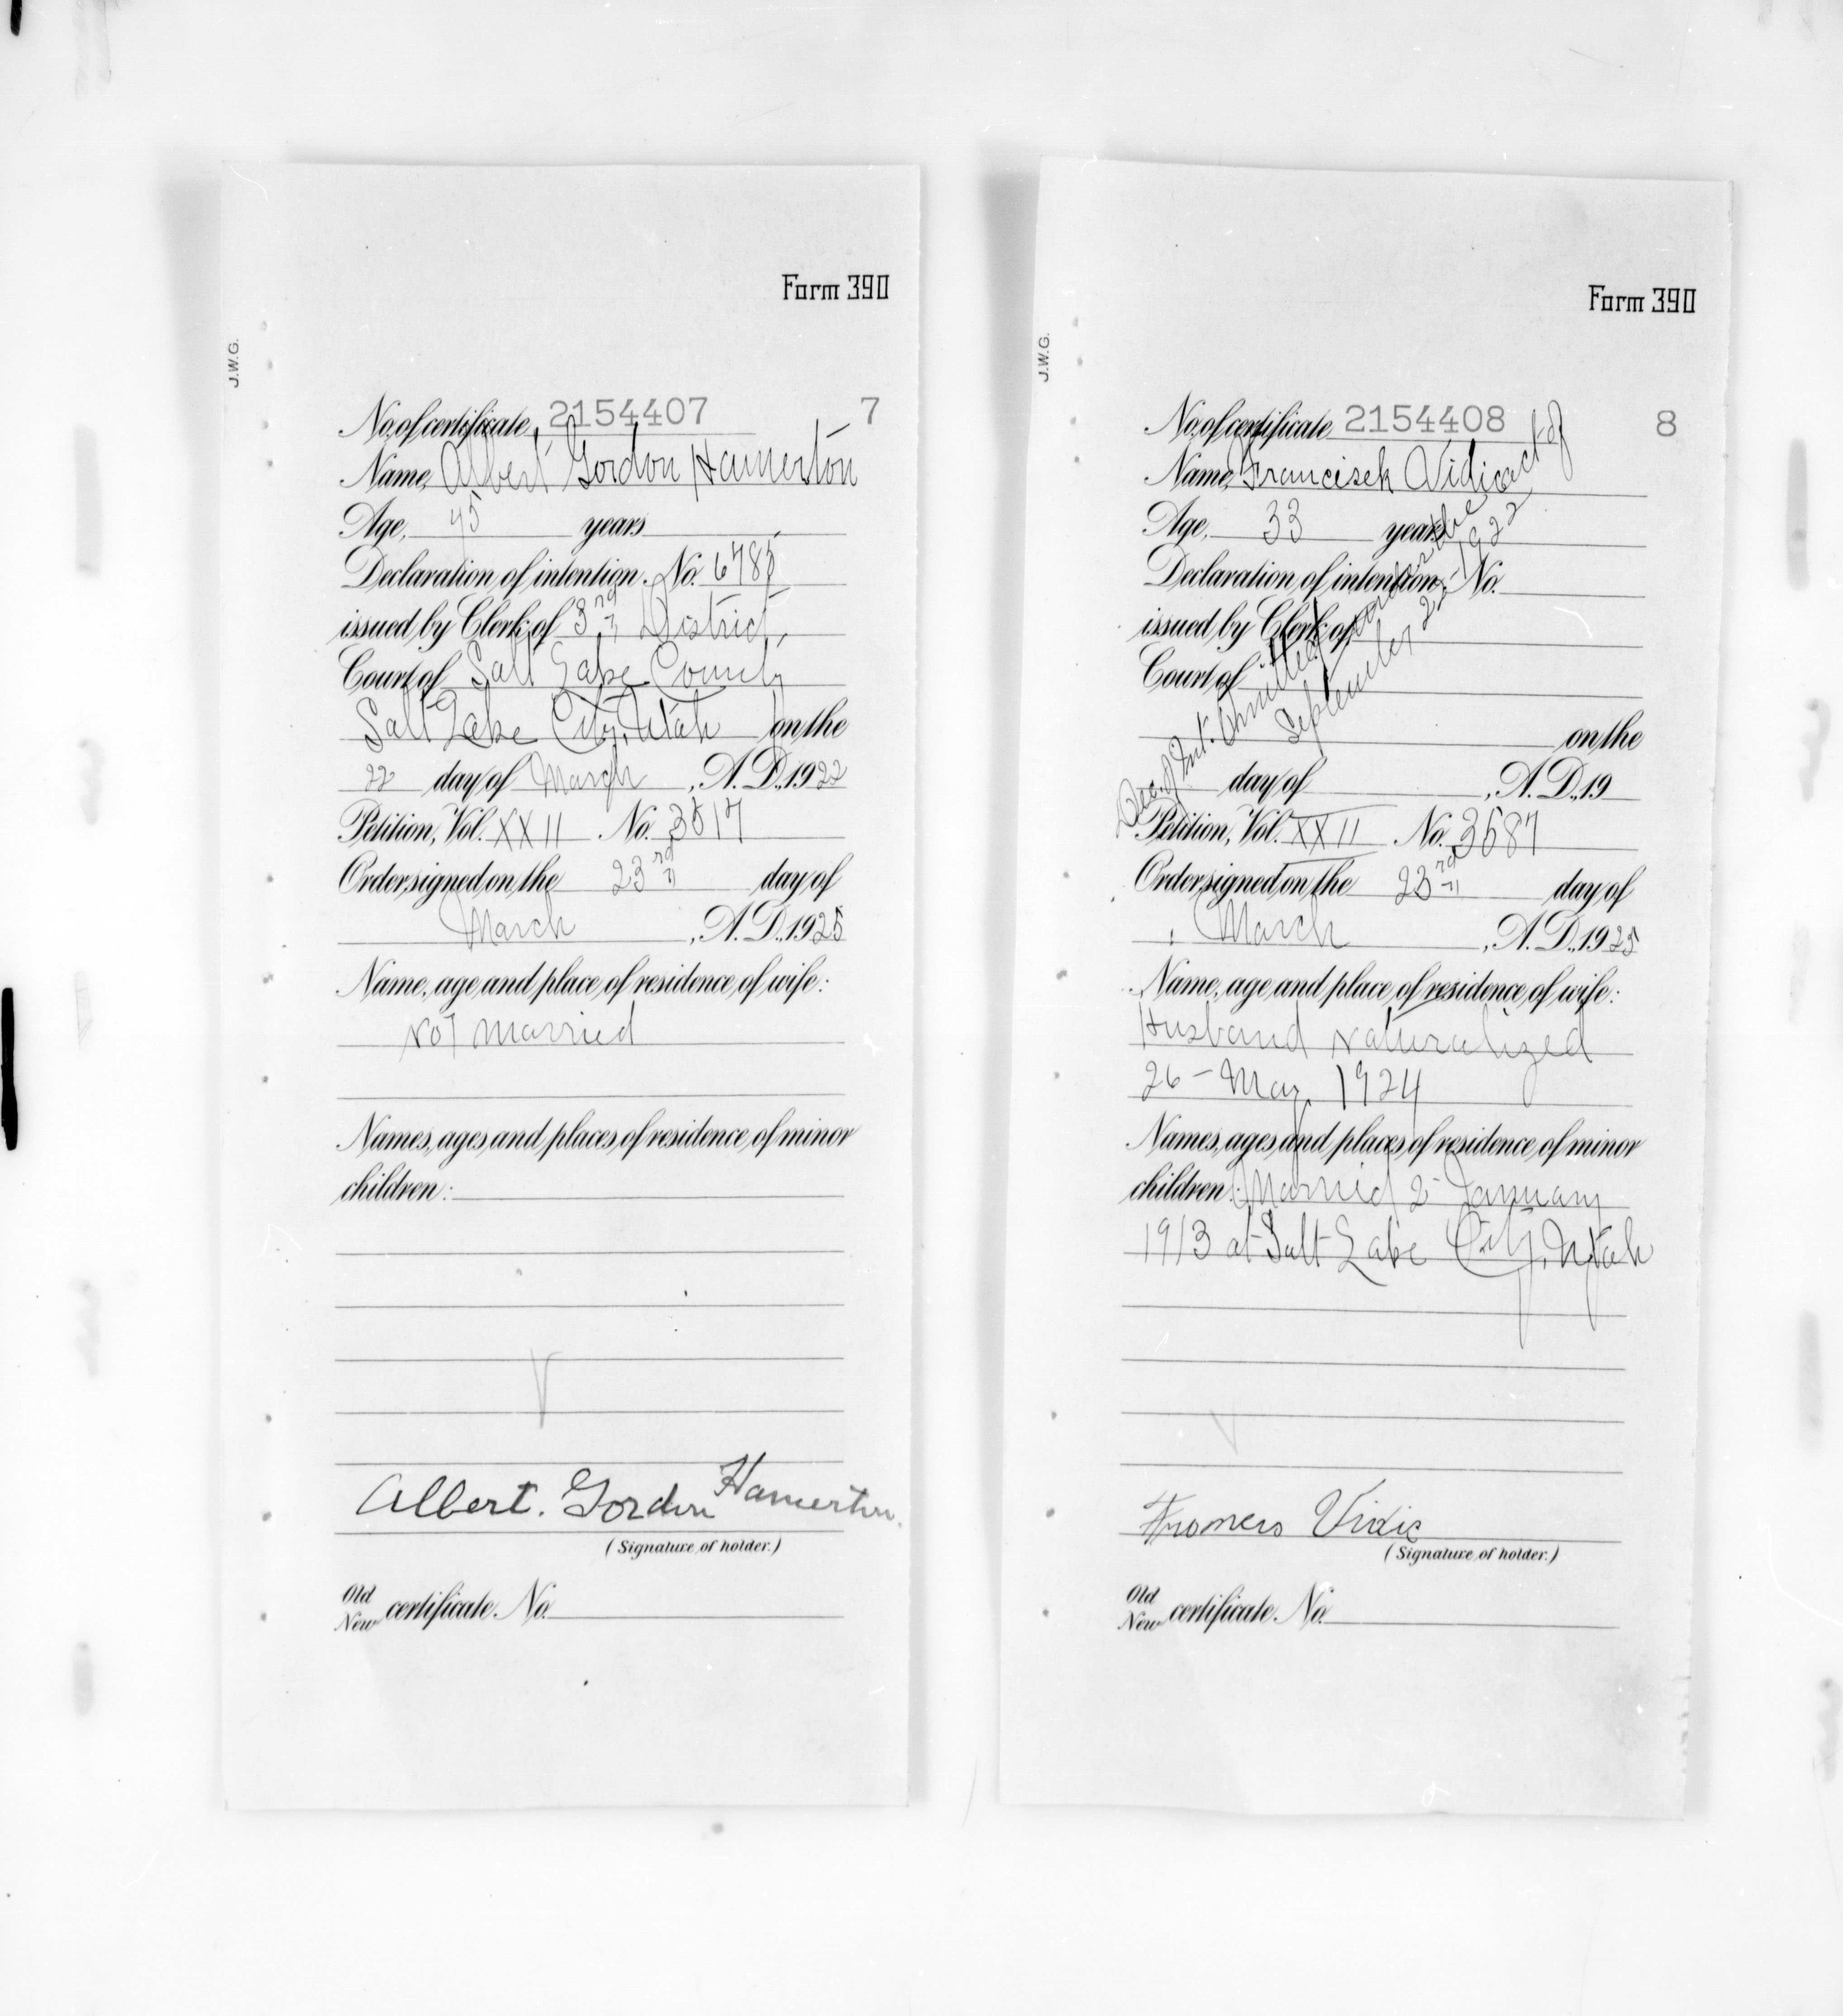 Form 390
J.W.G.
No. of certificate 2154407 7
Name, Albert Gordon Hamerton
Age, 45 years
Declaration of intention. No. 6785
issued by Clerk of 3rd District,
Court of Salt Lake County
Salt Lake City, Utah on the
22 day of March, A.D., 1922
Petition, Vol. XXII No. 3517
Order signed on the 23rd day of
March, A.D., 1925
Name, age and place of residence of wife:
Not Married
Names, ages and places of residence of minor
children:
Albert. Gordon Hamerton.
(Signature of holder.)
Old
New certificate No.
Form 390
J.W.G.
No. of certificate 2154408 8
Name, Francisek Vidic
Age, 33 years
Declaration of intention. No.
issued by Clerk of
Court of
on the
day of , A.D., 19
Dec. of Int. Omitted under the act of
September 22, 1922
Petition, Vol. XXII No. 3587
Order signed on the 23rd day of
March, A.D., 1925
Name, age and place of residence of wife:
Husband Naturalized
26 - May, 1924
Names, ages and places of residence of minor
children: Married 2 - January
1913 at Salt Lake City, Utah
Vidic
(Signature of holder.)
Old
New certificate No.